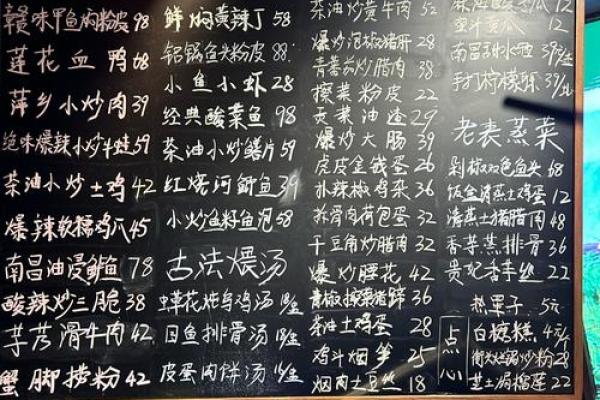 赣味甲鱼焖粉皮 98
莲花血鸭 68
萍乡小炒肉 39
绝味爆辣小炒牛蛙 59
茶油小炒土鸡 42
爆辣软糯鸡爪 45
南昌油浸鲥鱼 78
酸辣炒三脆 38
芋荷滑牛肉 42
蟹脚捞粉 42
鲜焖黄辣丁 58
铝锅鱼头粉皮 88
小鱼小虾 28
经典酸菜鱼 98
茶油小炒鳝片 59
红烧河鲫鱼 39
小火鱼籽鱼泡 58
古法煨汤
虫草花炖乌鸡汤 18/盅
目鱼排骨汤 18/盅
皮蛋肉饼汤 18/盅
茶油炒黄牛肉 52
爆炒泡椒猪肝 28
青蒜苗炒腊肉 38
擦菜粉皮 22
油渣 29
爆炒大肠 39
虎皮金钱蛋 26
外辣椒鸡杂 36
荷包蛋 32
干豆角炒腊肉 32
爆炒腰花 42
36
茶油土鸡蛋 28
鸡汁烟笋 25
烟肉土豆丝 18
12
12
南昌甜水酒 39/
手打柠檬
老表蒸菜
剁椒双色鱼头 68
饭盒清蒸土鸡蛋 12
清蒸土猪腊肉 48
香芋蒸排骨 36
贵妃杏手丝 22
点心
5元
白糖糕 4元/
炒粉 28
22